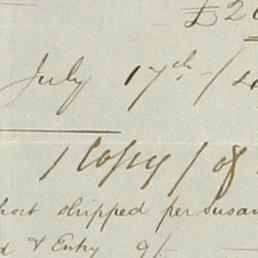 £2
July 17th /
/ Copy / of
shipped per Susan
& Entry 9/-